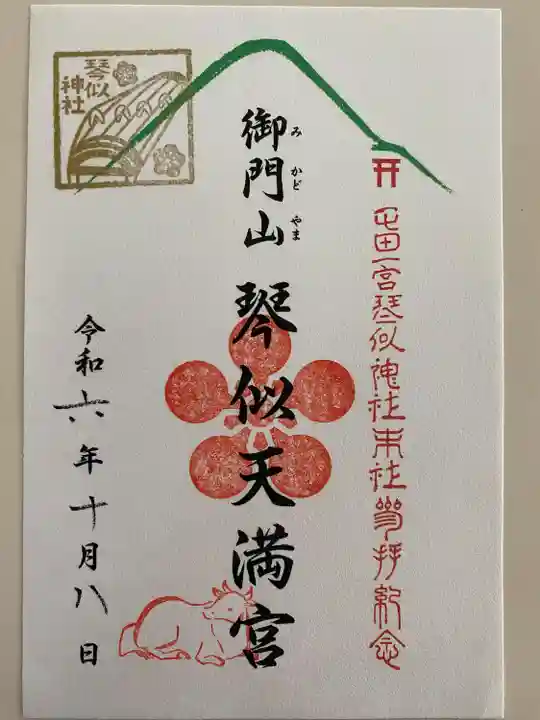 屯田一宮琴似神社末社参拝紀念
御門山
みかどやま
琴似天満宮
令和六年十月八日
琴似
神社